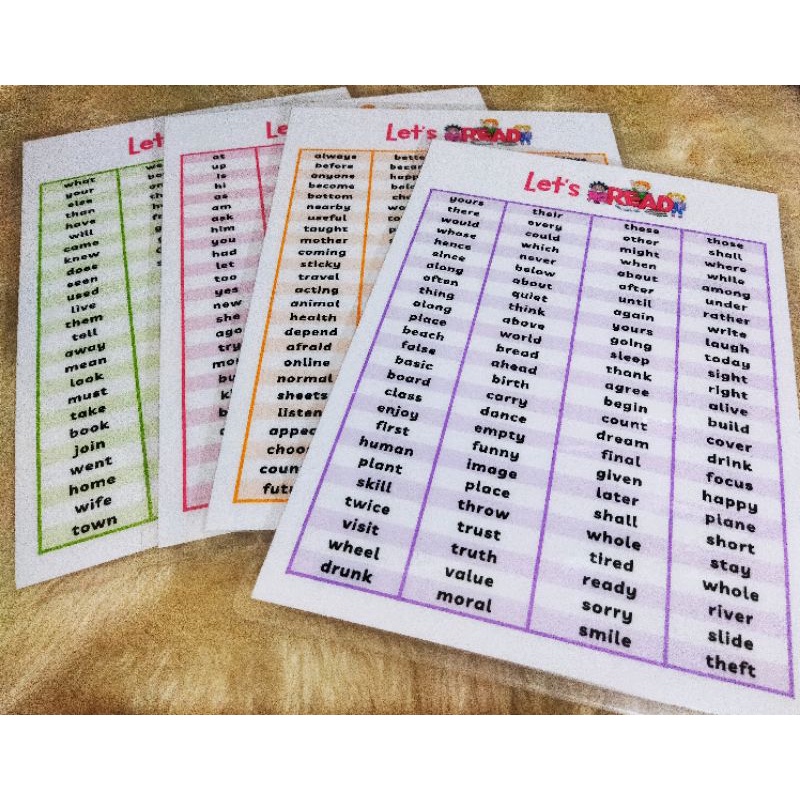 Let
what
your
else
than
have
will
came
knew
does
seen
used
live
them
tell
away
mean
look
must
take
book
join
went
home
wife
town
Le
at
up
is
hi
as
am
ask
him
you
had
let
too
yes
new
she
ago
try
Let's READ
always
before
anyone
become
bottom
nearby
useful
taught
mother
coming
sticky
travel
acting
animal
health
depend
afraid
online
normal
sheets
listen
appea
choo
coun
futu
Let's READ
yours
there
would
whose
hence
since
along
often
thing
along
place
beach
false
basic
board
class
enjoy
first
human
plant
skill
twice
visit
wheel
drunk
their
every
could
which
never
below
about
quiet
think
above
world
bread
ahead
birth
carry
dance
empty
funny
image
place
throw
trust
truth
value
moral
these
other
might
when
about
after
until
again
yours
going
sleep
thank
agree
begin
count
dream
final
given
later
shall
whole
tired
ready
sorry
smile
those
shall
where
while
among
under
rather
write
laugh
today
sight
right
alive
build
cover
drink
focus
happy
plane
short
stay
whole
river
slide
theft